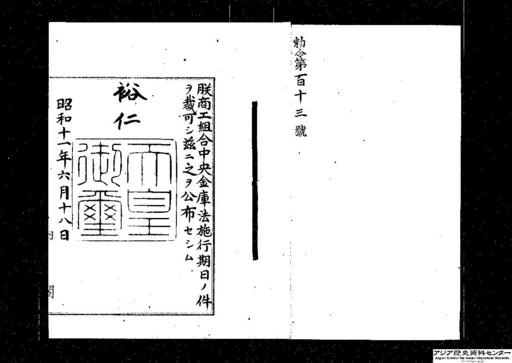 勅令第百十三號
朕商工組合中央金庫法施行期日ノ件
ヲ裁可シ茲ニ之ヲ公布セシム
裕仁
天皇
御璽
昭和十一年六月十八日
アジア歴史資料センター
Japan Center for Asian Historical Records